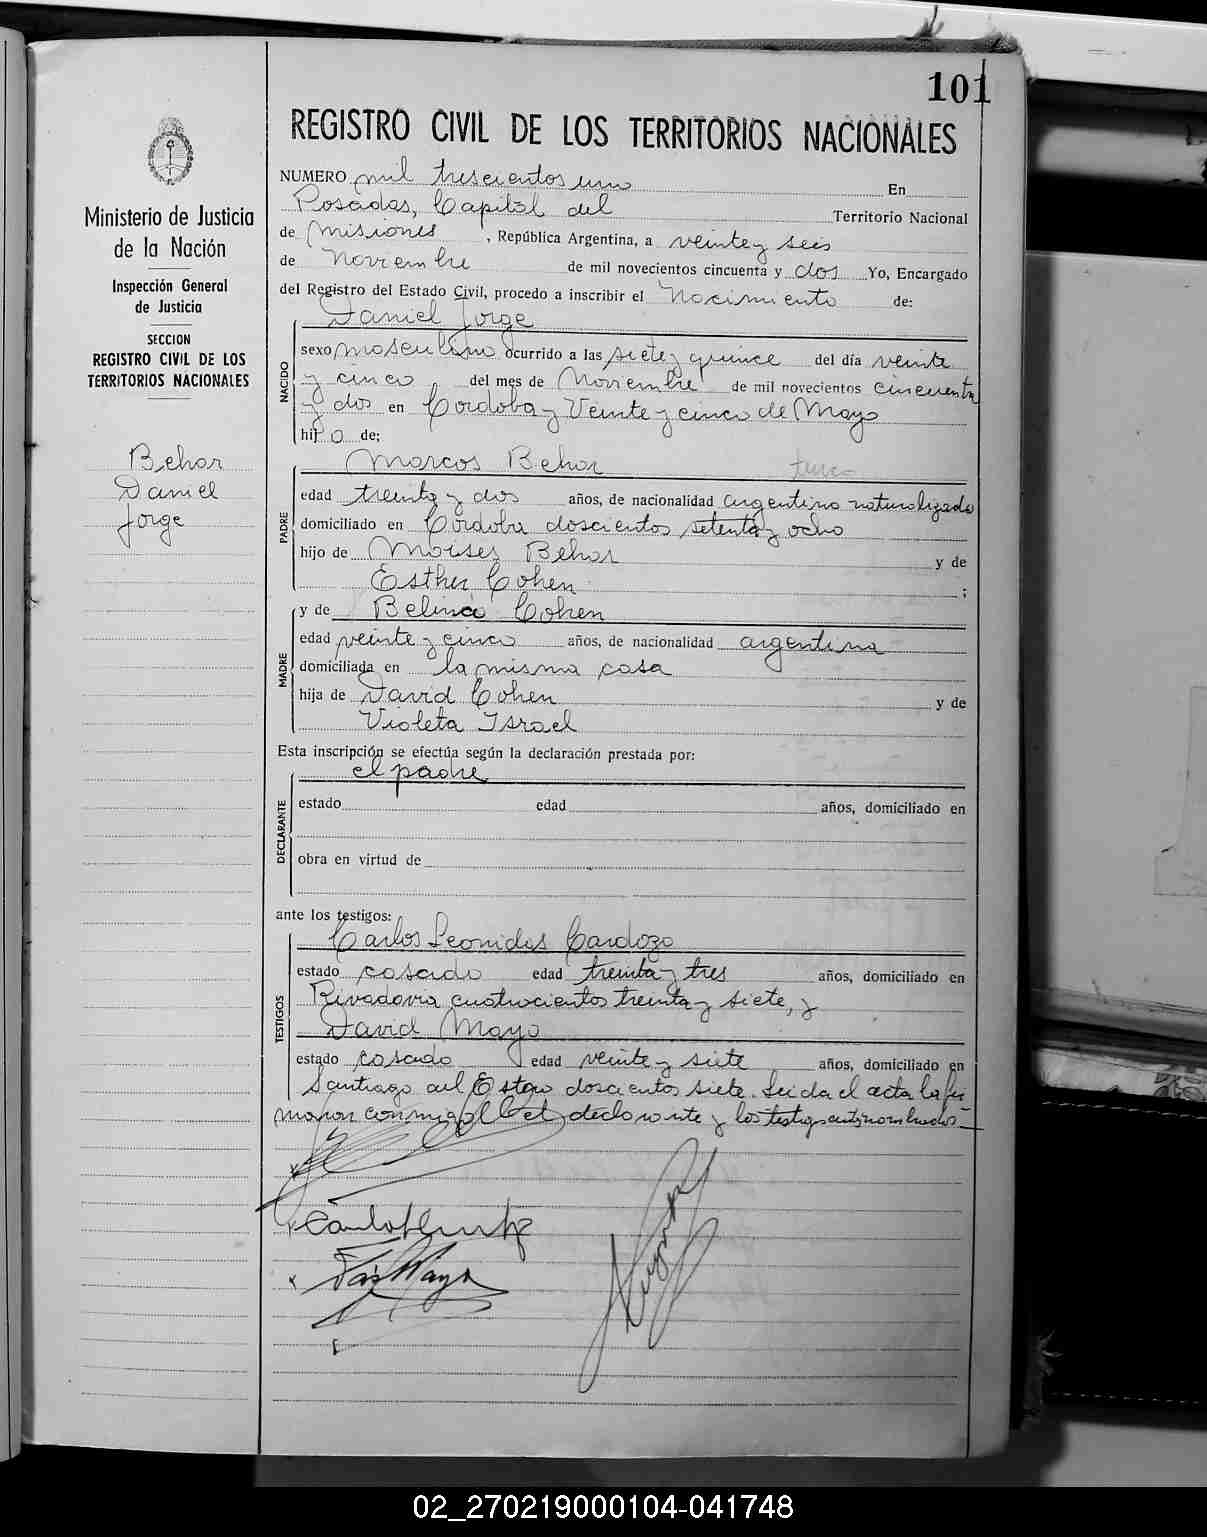 101
REGISTRO CIVIL DE LOS TERRITORIOS NACIONALES
Ministerio de Justicia
de la Nación
Inspección General
de Justicia
SECCION
REGISTRO CIVIL DE LOS
TERRITORIOS NACIONALES
Behar
Daniel
Jorge
NUMERO mil trescientos uno En
Posadas, Capital del Territorio Nacional
de Misiones, República Argentina, a veinte y seis
de Noviembre de mil novecientos cincuenta y dos Yo, Encargado
del Registro del Estado Civil, procedo a inscribir el Nacimiento de:
Daniel Jorge
NACIDO
sexo masculino ocurrido a las siete y quince del día veinte
y cinco del mes de Noviembre de mil novecientos cincuenta
y dos en Córdoba y Veinte y cinco de Mayo
hijo de;
Marcos Behar turco
PADRE
edad treinta y dos años, de nacionalidad argentino naturalizado
domiciliado en Córdoba doscientos setenta y ocho
hijo de Moises Behar y de
Esther Cohen ;
y de Belina Cohen
MADRE
edad veinte y cinco años, de nacionalidad argentina
domiciliada en la misma casa
hija de David Cohen y de
Violeta Israel
Esta inscripción se efectúa según la declaración prestada por:
el padre
DECLARANTE
estado edad años, domiciliado en
obra en virtud de
ante los testigos:
Carlos Leonides Cardozo
TESTIGOS
estado casado edad treinta y tres años, domiciliado en
Rivadavia cuatrocientos treinta y siete, y
David Mayo
estado casado edad veinte y siete años, domiciliado en
Santiago del Estero doscientos siete. Leida el acta la fir
maron conmigo el declarante y los testigos
02_270219000104-041748